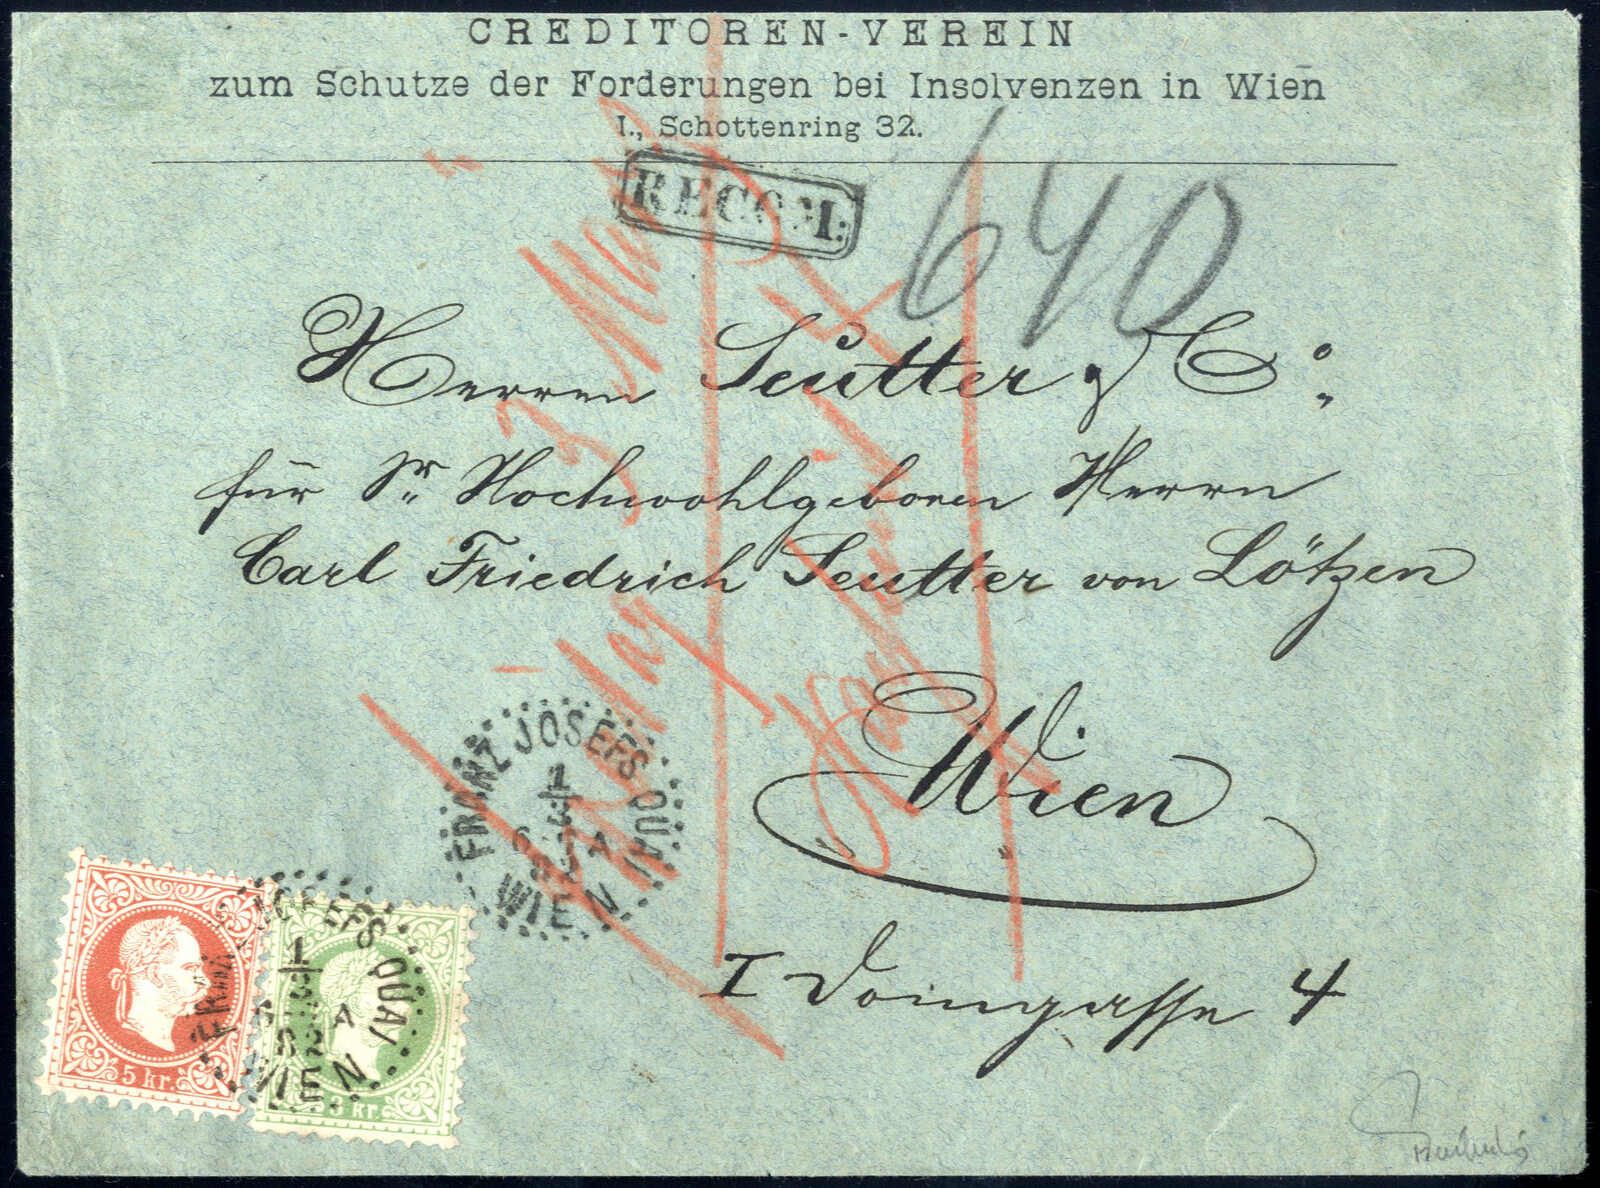 CREDITOREN-VEREIN
zum Schutze der Forderungen bei Insolvenzen in Wien
I., Schottenring 32.
RECOM:
640
Herren Seutter & Co.
für Sr. Hochwohlgeboren Herrn
Carl Friedrich Seutter von Lötzen
Wien
I Domgasse 4
FRANZ JOSEFS QUAI
1
6 A
82
WIEN
FRANZ JOSEFS QUAI
1
6 A
82
WIEN
5 kr.
3 kr.